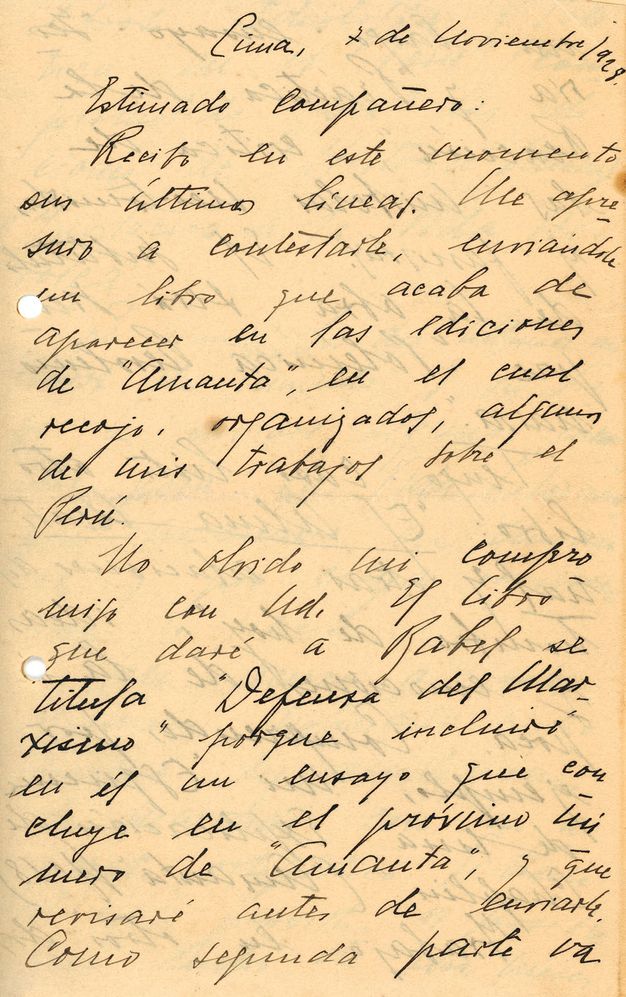 Lima, 7 de Noviembre/928.
Estimado compañero:
Recibo en este momento
sus últimas líneas. Me apre-
suro a contestarle, enviándole
un libro que acaba de
aparecer en las ediciones
de "Amauta", en el cual
recojo, organizados, algunos
de mis trabajos sobre el
Perú.
No olvido mi compro
miso con Ud. El libro
que daré a Babel se
titula "Defensa del Mar-
xismo" porque incluiré
en él un ensayo que con
cluye en el próximo nú
mero de "Amauta", y que
revisaré antes de enviarle.
Como segunda parte va